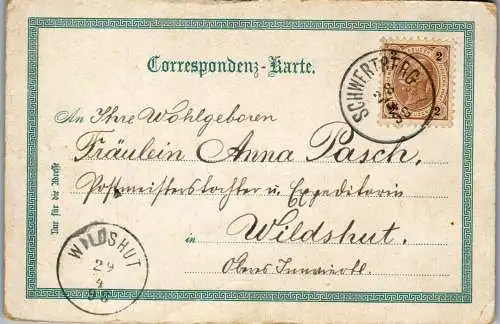 Correspondenz-Karte.
2 2
SCHWERTBERG
28
An Ihre Wohlgeboren
Fräulein Anna Pasch,
Postmeisterstochter u. Expeditorin
in Wildshut.
Oberes Innviertl.
Nur für die Adresse
WILDSHUT
29
4